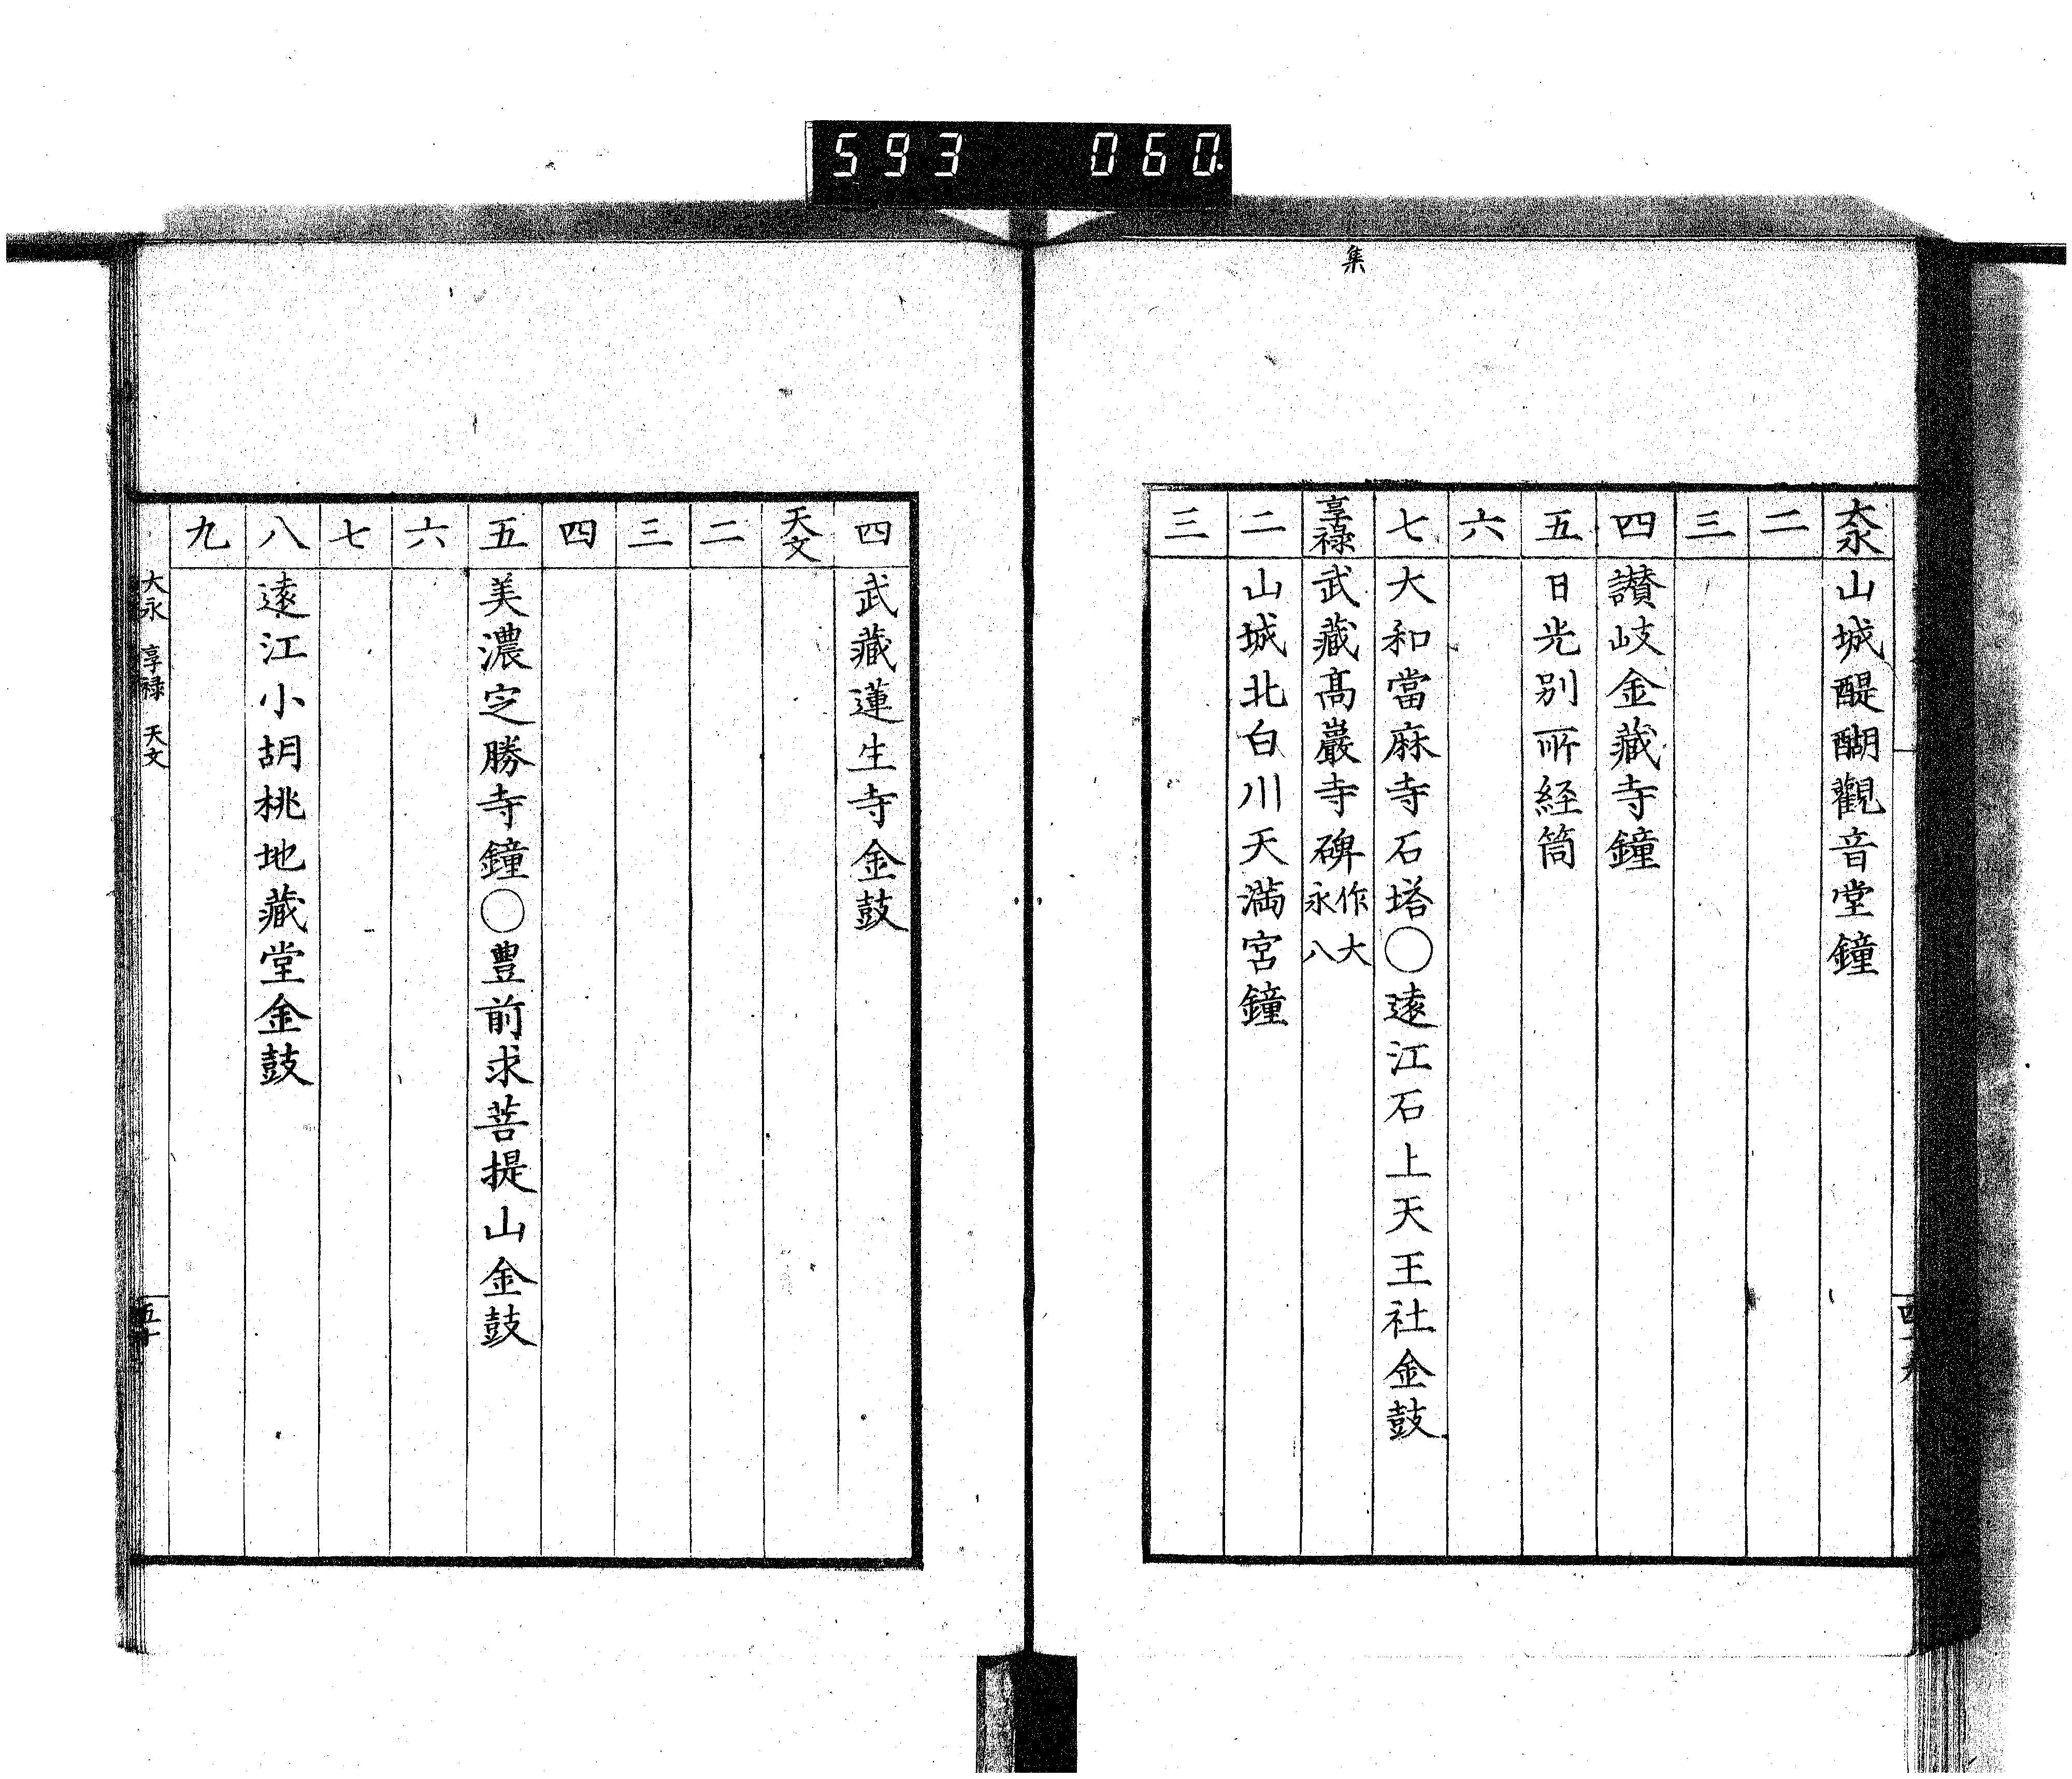 593 060.
集
大永 山城醍醐觀音堂鐘
二
三
四 讃岐金藏寺鐘
五 日光別所経筒
六
七 大和當麻寺石塔〇遠江石上天王社金鼓
享禄 武藏髙巖寺碑作大永八
二 山城北白川天満宮鐘
三
四 武藏蓮生寺金鼓
天文
二
三
四
五 美濃定勝寺鐘〇豊前求菩提山金鼓
六
七
八 遠江小胡桃地藏堂金鼓
九
大永 享禄 天文
五十